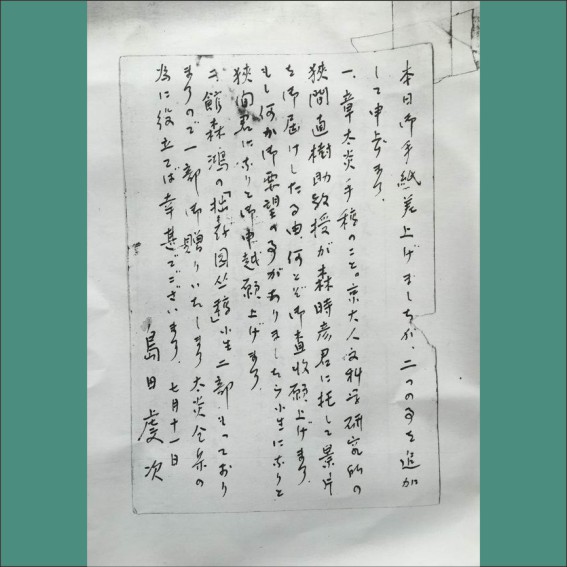 本日御手紙差上げましたが、二つの事を追加
して申上ます。
一、章太炎手稿のこと。京大人文科学研究所の
狭間直樹助教授が森時彦君に托して景片
を御届けしたる由、何とぞ御査収願上げます。
もし何か御要望の事がありましたら小生になりと
狭間君になりと御申越願上げます。
二、館森鴻の『拙存園丛稿』小生二部もっており
ますので一部御贈りいたします。太炎全集の
為に役立てば幸甚でございます。七月十一日
島田虔次